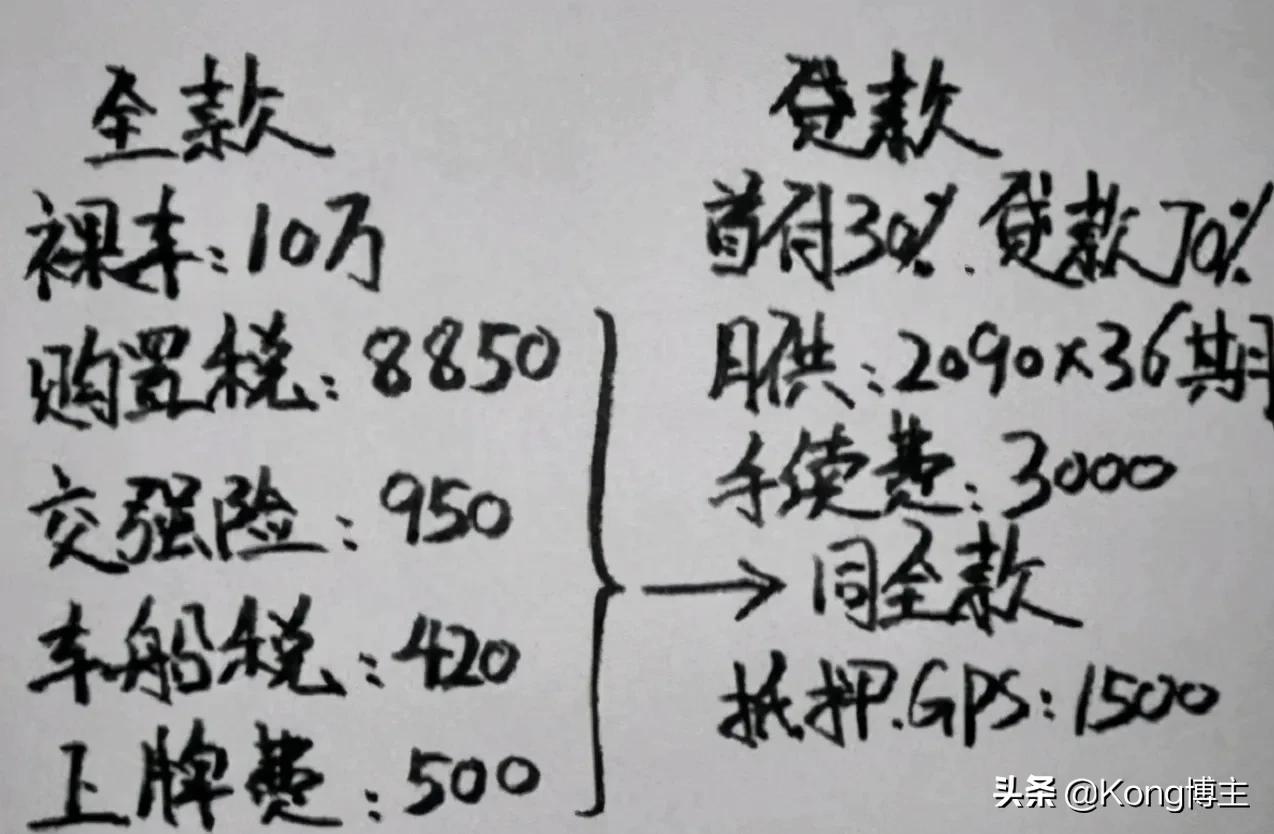 全款
裸车:10万
购置税:8850
交强险:950
车船税:420
上牌费:500
贷款
首付30%.贷款70%
月供:2090×36期
手续费:3000
→同全款
抵押.GPS:1500
头条 @Kong博主